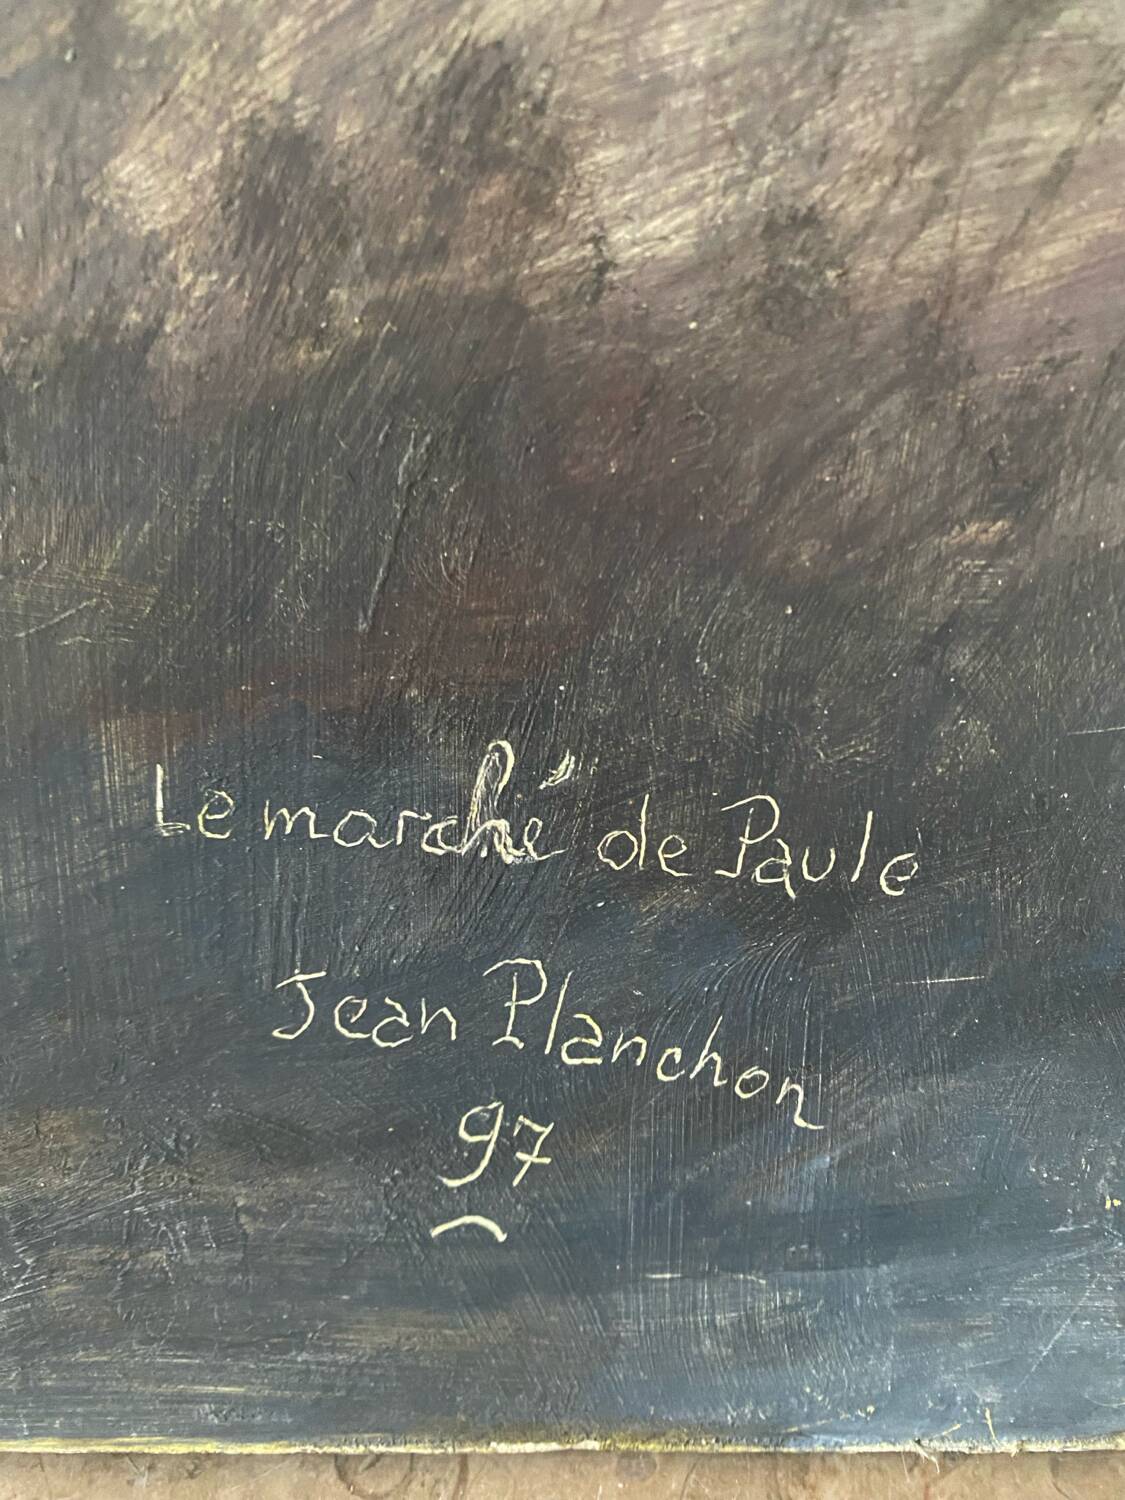 Le marché de Paule
Jean Planchon
97